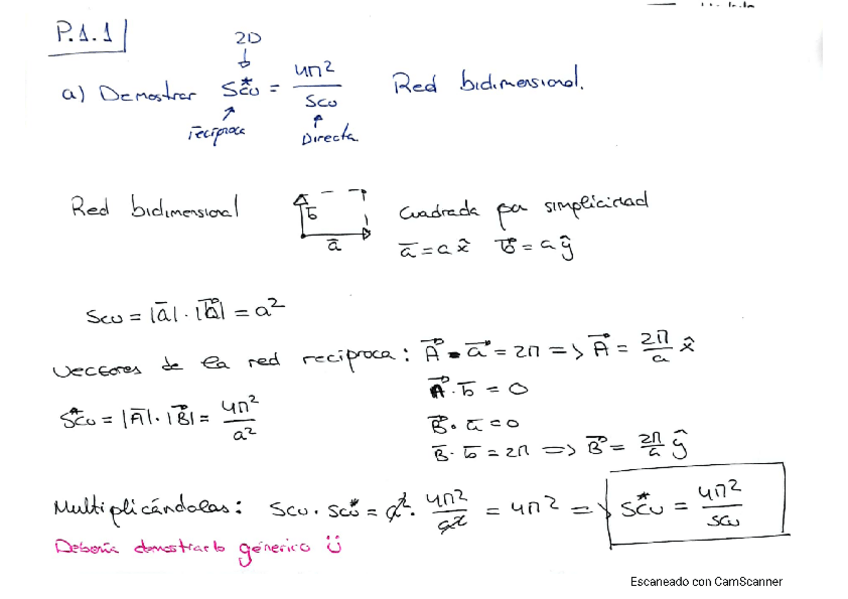 P.1.1
2D
a) Demostrar S*cu = 4π² / Scu Red bidimensional.
recíproca Directa
Red bidimensional b a Cuadrada por simplicidad
a = a x̂ b = a ŷ
Scu = |a| · |b| = a²
Vectores de la red recíproca: A · a = 2π => A = 2π/a x̂
A · b = 0
S*cu = |A| · |B| = 4π² / a²
B · a = 0
B · b = 2π => B = 2π/a ŷ
Multiplicándolas: Scu · S*cu = a² · 4π²/a² = 4π² => S*cu = 4π² / Scu
Debería demostrarlo génerico Ü
Escaneado con CamScanner